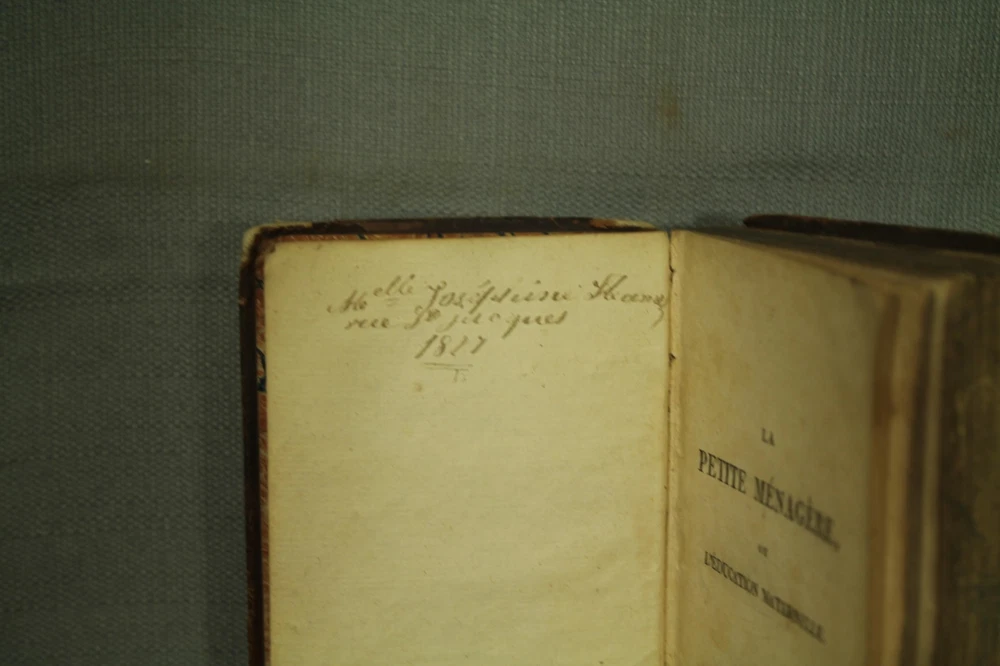 Melle Joséphine
rue St jacques
1827
LA
PETITE MÉNAGÈRE,
OU
L'ÉDUCATION MATERNELLE.